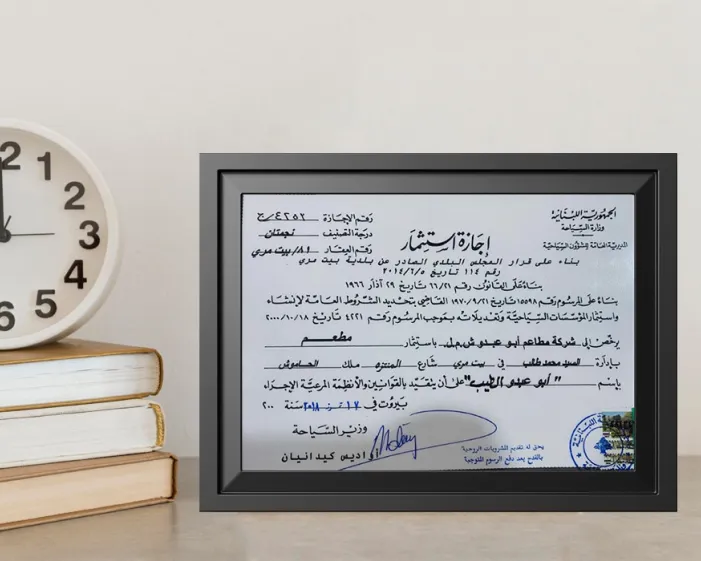 2
1
2
3
4
5
6
الجمهورية اللبنانية
وزارة السياحة
المديرية العامة للشؤون السياحية
رقم الإجازة ٤٢٥٢/ج
درجة التصنيف نجمتان
رقم العقار ٨١/بيت مري
إجازة استثمار
بناء على قرار المجلس البلدي الصادر عن بلدية بيت مري
رقم ١١٤ تاريخ ٢٠١٤/٦/٥
بناءً على القانون رقم ٦٦/٢١ تاريخ ٢٩ آذار ١٩٦٦
بناءً على المرسوم رقم ١٥٥٩٨ تاريخ ١٩٧٠/٩/٢١ القاضي بتحديد الشروط العامة لإنشاء
واستثمار المؤسسات السياحية وتعديلاته بموجب المرسوم رقم ٤٢٢١ تاريخ ٢٠٠٠/١٠/١٨
يرخص إلى شركة مطاعم أبو عبدو ش.م.ل باستثمار مطعم
بإدارة السيد محمد طالب في بيت مري شارع المنتزه ملك
بإسم "أبو عبدو الطيب" على أن يتقيد بالقوانين والأنظمة المرعية الإجراء
بيروت في ١٧ ٢٠١٨ سنة ٢٠٠
وزير السياحة
أواديس كيدانيان
يحق له تقديم المشروبات الروحية
بالقدح بعد دفع الرسوم المتوجبة